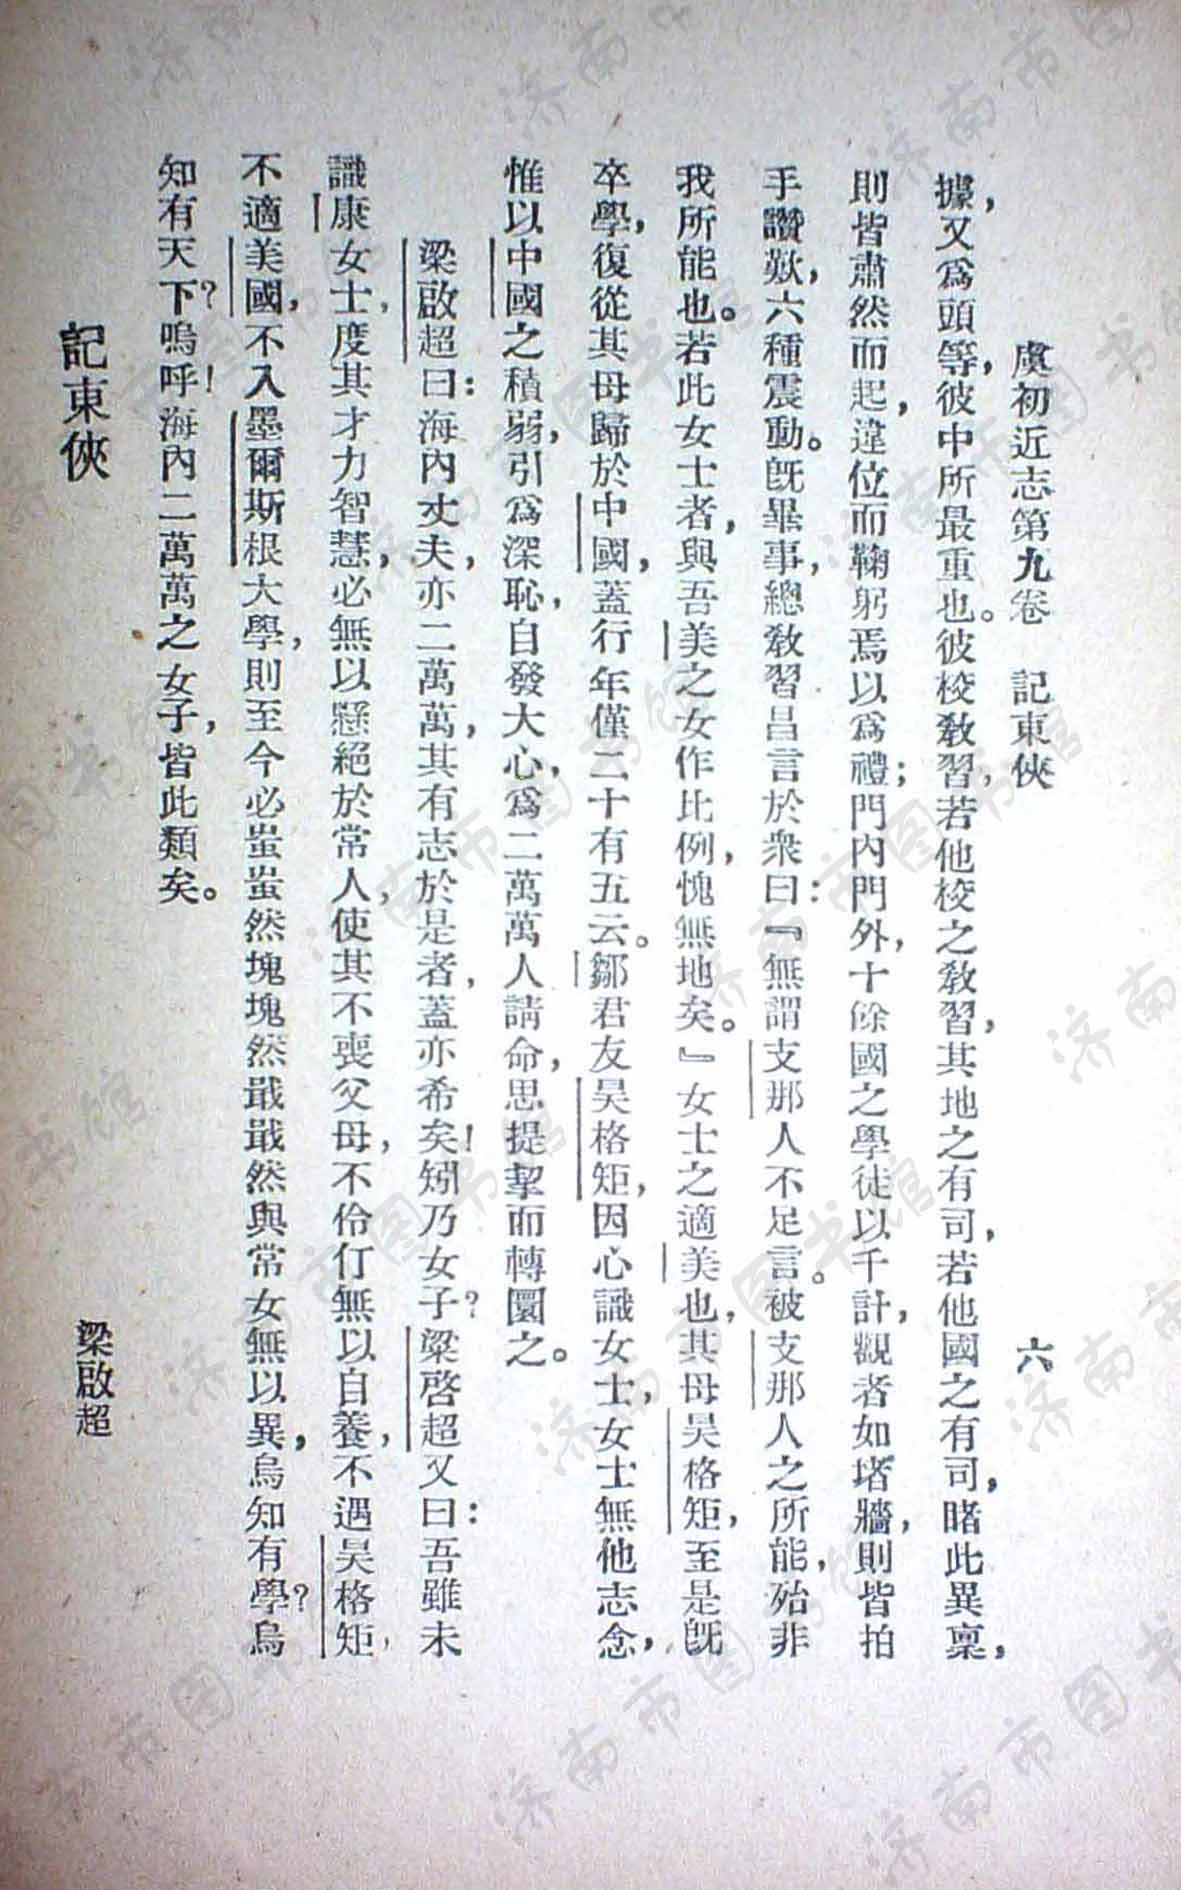 虞初近志第九卷　記東俠　六
據，又爲頭等，彼中所最重也。彼校敎習，若他校之敎習，其地之有司，若他國之有司，睹此異稟，
則皆肅然而起，違位而鞠躬焉以爲禮；門內門外，十餘國之學徒以千計，觀者如堵牆，則皆拍
手讚歎，六種震動。旣畢事，總敎習昌言於衆曰：『無謂支那人不足言。被支那人之所能，殆非
我所能也。若此女士者，與吾美之女作比例，愧無地矣。』女士之適美也，其母昊格矩，至是旣
卒學，復從其母歸於中國，蓋行年僅二十有五云。鄒君友昊格矩，因心識女士，女士無他志念，
惟以中國之積弱，引爲深恥，自發大心，爲二萬萬人請命，思提挈而轉圜之。
梁啟超曰：海內丈夫，亦二萬萬，其有志於是者，蓋亦希矣！矧乃女子？梁啓超又曰：吾雖未
識康女士，度其才力智慧，必無以懸絕於常人，使其不喪父母，不伶仃無以自養，不遇昊格矩，
不適美國，不入墨爾斯根大學，則至今必蚩蚩然塊塊然戢戢然與常女無以異，烏知有學？烏
知有天下？嗚呼！海內二萬萬之女子，皆此類矣。
記東俠　梁啟超
济南市图书馆